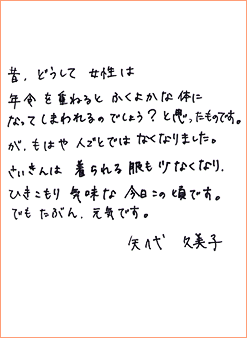 昔，どうして 女性は
年令を重ねると ふくよかな体に
なってしまわれるのでしょう？と思ったものです。
が，もはや 人ごとでは なくなりました。
さいきんは 着られる服も少なくなり，
ひきこもり 気味な 今日この頃です。
でも たぶん，元気です。
矢代 久美子